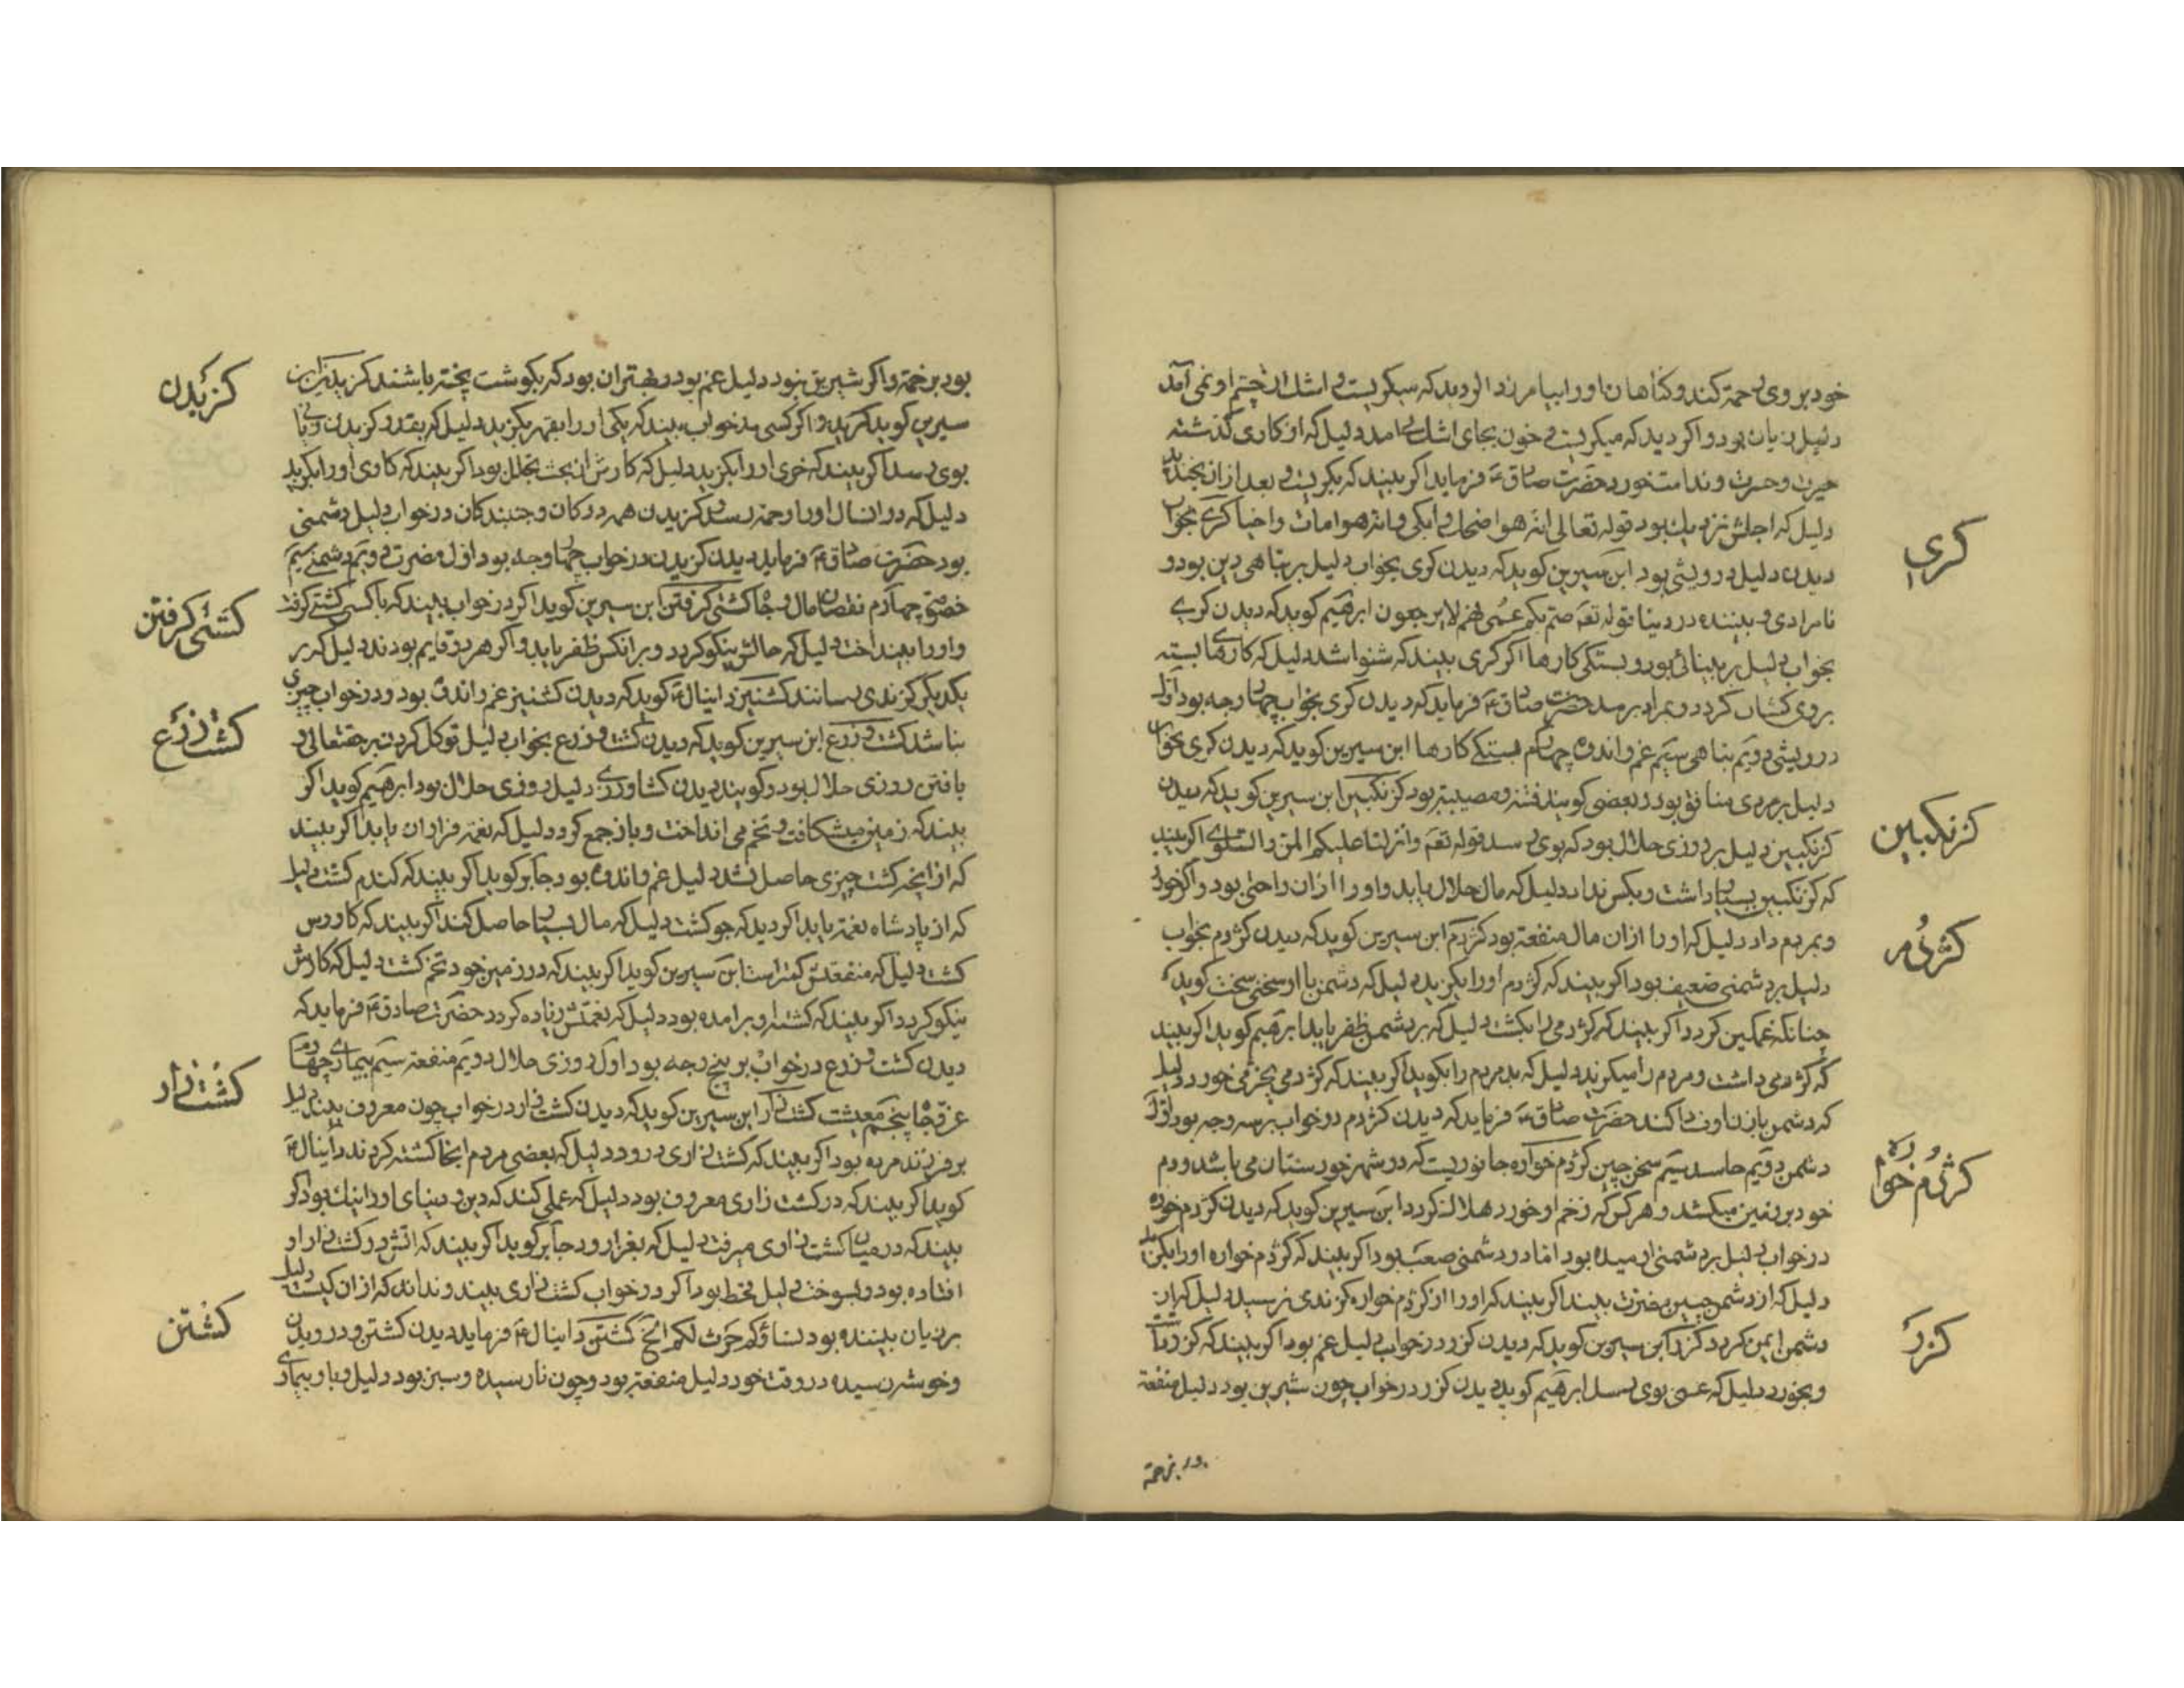 خود بر وی رحمة کند و کناهان او را بیامرزد اکر دید که میکریست و اشك از چشم او نمی آمد
دلیل زیان بود و اکر دید که میکریست و خون بجای اشك می امد دلیل که از کاری کذشته
حیرت و حسرت و ندامت خورد حضرت صادق ع فرماید اکر بیند که بکریست و بعد از ان بخندید
دلیل که اجلش نزدیك بود قوله تعالی انه هوا ضحك و ابکی و انه هوامات و احیا کری بخواب
دیدن دلیل درویشی بود ابن سیرین کوید که دیدن کری بخواب دلیل بر تباهی دین بود و
نامرادی بیننده در دینا قوله تع صم بکم عمی فهم لا یرجعون ابرهیم کوید که دیدن کری
بخواب دلیل بر بینائی بود و بستکی کارها اکر کری بیند که شنوا شد دلیل که کارهای بسته
بر وی کشاده کردد و بمراد برسد حضرت صادق ع فرماید که دیدن کری بخواب چهار وجه بود اول
درویشی دویم تباهی سیم غم و اندوه چهارم بستکی کارها ابن سیرین کوید که دیدن کری بخواب
دلیل بر مردی منافق بود و بعضی کویند فتنه و مصیبة بود کزنکبین ابن سیرین کوید که دیدن
کزنکبین دلیل بر روزی حلال بود که بوی رسد قوله تع و انزلنا علیکم المن و السلوی اکر بیند
که کزنکبین بسیار داشت و بکس نداد دلیل که مال حلال یابد و او را ازان راحتی بود و اکر خورد
و بمردم داد دلیل که او را ازان مال منفعة بود کژدم ابن سیرین کوید که دیدن کژدم بخواب
دلیل بر دشمنی ضعیف بود اکر بیند که کژدم او را بکزید دلیل که دشمن با او سخنی سخت کوید
چنانکه غمکین کردد اکر بیند که کژدمی را بکشت دلیل که بر دشمن ظفر یابد ابرهیم کوید اکر بیند
که کژدمی داشت و مردم را میکزید دلیل که بد مردم را بکوید اکر بیند که کژدمی پخته می خورد دلیل
که دشمن با زن او فساد کند حضرت صادق ع فرماید که دیدن کژدم در خواب بر سه وجه بود اول
دشمن دویم حاسد سیم سخن چین کژدم خواره جانوریست که در شهر خوزستان می باشد و دم
خود بر زمین میکشد و هر کس که زخم او خورد هلاك کردد ابن سیرین کوید که دیدن کژدم خواره
در خواب دلیل بر دشمنی ارمیده بود اما در دشمنی صعب بود اکر بیند که کژدم خواره او را بکزید
دلیل که از دشمن چنین مضرت بیند اکر بیند که او را از کژدم خواره کزندی نرسید دلیل که از
دشمن ایمن کردد کزر ابن سیرین کوید که دیدن کزر در خواب دلیل غم بود اکر بیند که کزر داشت
و بخورد دلیل که غمی بوی رسد ابرهیم کوید دیدن کزر در خواب چون شیرین بود دلیل منفعة
کری
کزنکبین
کژدم
کژدم خواره
کزر
بود بر خمة و اکر شیرین نبود دلیل غم بود و بهتر ان بود که بکوشت پخته باشند کزیدن ابن
سیرین کوید اکر کسی در خواب بیند که یکی او را بقهر بکزید دلیل که بقدر کزیدن زیان
بوی رسد اکر بیند که خری او را بکزید دلیل که کارش از بخت بخلل بود اکر بیند که کاوی او را بکزید
دلیل که در ان سال او را زحمة رسد و کزیدن همه ددکان و جنبندکان در خواب دلیل دشمنی
بود حضرت صادق ع فرماید دیدن کزیدن در خواب چهار وجه بود اول مضرت دویم دشمنی سیم
خصومة چهارم نقصان مال و جاه کشتی کرفتن ابن سیرین کوید اکر در خواب بیند که با کسی کشتی کرفت
و او را بینداخت دلیل که حالش نیکو کردد و بر انکس ظفر یابد و اکر هر دو قایم بودند دلیل که بر
یکدیکر کزندی رسانند کشنیز دانیال ع کوید که دیدن کشنیز غم و اندوه بود و در خواب چیزی
نباشد کشت و زرع ابن سیرین کوید که دیدن کشت و زرع بخواب دلیل توکل کردن بر حقتعالی و
یافتن روزی حلال بود و کویند دیدن کشاورزی دلیل روزی حلال بود ابرهیم کوید اکر
بیند که زمین میشکافت و تخم می انداخت و باز جمع کرد دلیل که نعمة فراوان یابد اکر بیند
که از انچه کشت چیزی حاصل نشد دلیل غم و اندوه بود جابر کوید اکر بیند که کندم کشت دلیل
که از پادشاه نعمة یابد اکر دید که جو کشت دلیل که مال بسیار حاصل کند اکر بیند که کاورس
کشت دلیل که منفعتش کمتر است ابن سیرین کوید اکر بیند که در زمین خود تخم کشت دلیل که کارش
نیکو کردد اکر بیند که کشته او برامده بود دلیل که نعمتش زیاده کردد حضرت صادق ع فرماید که
دیدن کشت و زرع در خواب بر پنج وجه بود اول روزی حلال دویم منفعة سیم بیماری چهارم
عز و جاه پنجم معیشت کشت زار ابن سیرین کوید که دیدن کشت زار در خواب چون معروف بیند دلیل
بر فرزند مرد بود اکر بیند که کشت زاری درود دلیل که بعضی مردم انجا کشته کردند دانیال ع
کوید اکر بیند که در کشت زاری معروف بود دلیل که عملی کند که دین و دنیای او را نیك بود اکر
بیند که در میان کشت زاری میرفت دلیل که بغزا رود جابر کوید اکر بیند که اتش در کشت زار او
افتاده بود و بسوخت دلیل قحط بود اکر در خواب کشت زاری بیند و نداند که ازان کیست دلیل
بر زیان بیننده بود نساؤکم حرث لکم الخ کشتن دانیال ع فرماید دیدن کشتن و درویدن
و خوشه رسیده در وقت خود دلیل منفعة بود و چون نارسیده و سبز بود دلیل وبا و بیماری
کزیدن
کشتی کرفتن
کشت زرع
کشت زار
کشتن